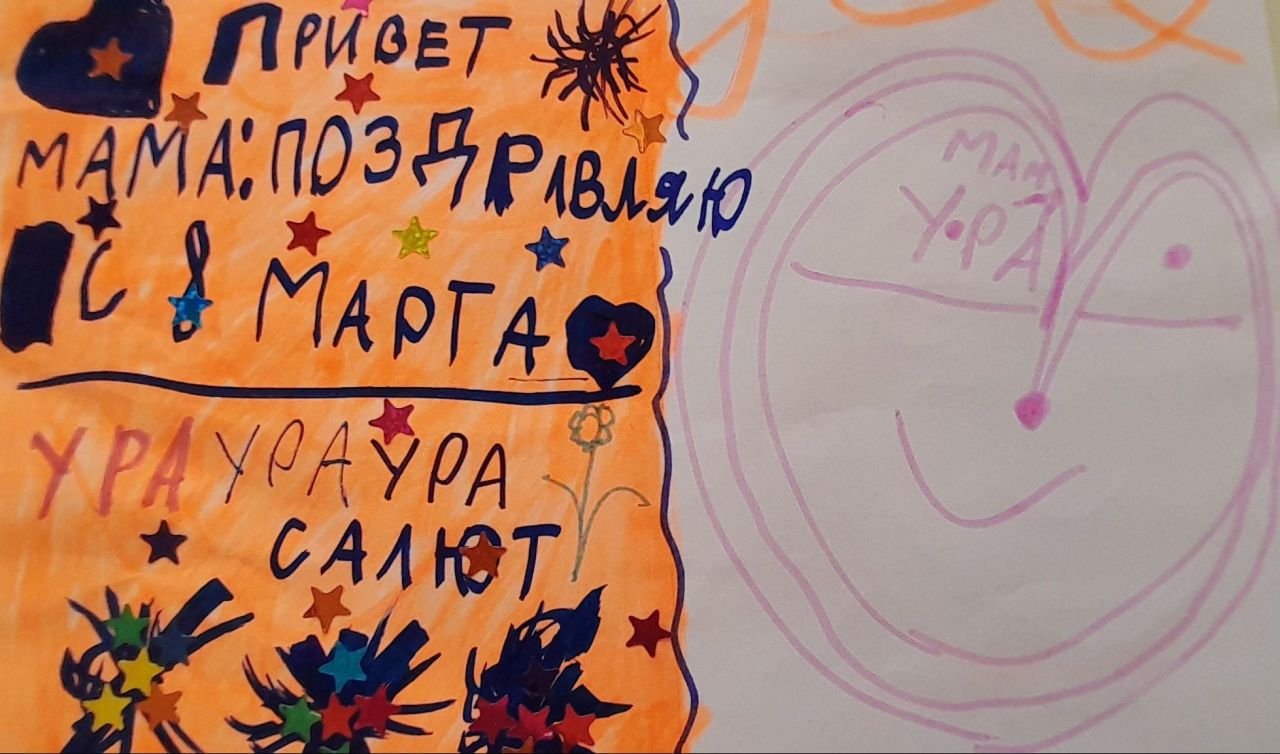 ПРИВЕТ
МАМА: ПОЗДРАВЛЯЮ
С 8 МАРТА
УРА УРА УРА
САЛЮТ
МАМ
УРА